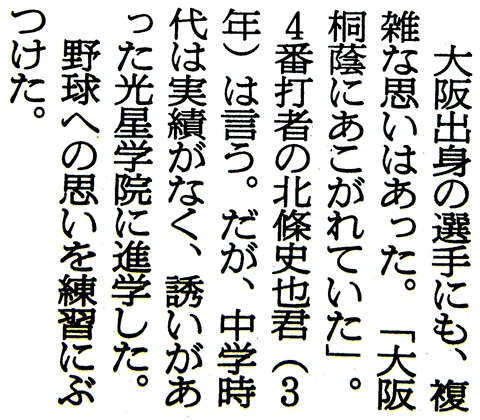 大阪出身の選手にも、複
雑な思いはあった。「大阪
桐蔭にあこがれていた」。
4番打者の北條史也君（3
年）は言う。だが、中学時
代は実績がなく、誘いがあ
った光星学院に進学した。
野球への思いを練習にぶ
つけた。